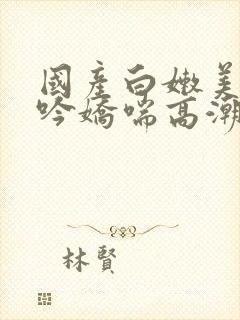 國產白嫩美
吟嬌喘高潮
林賢